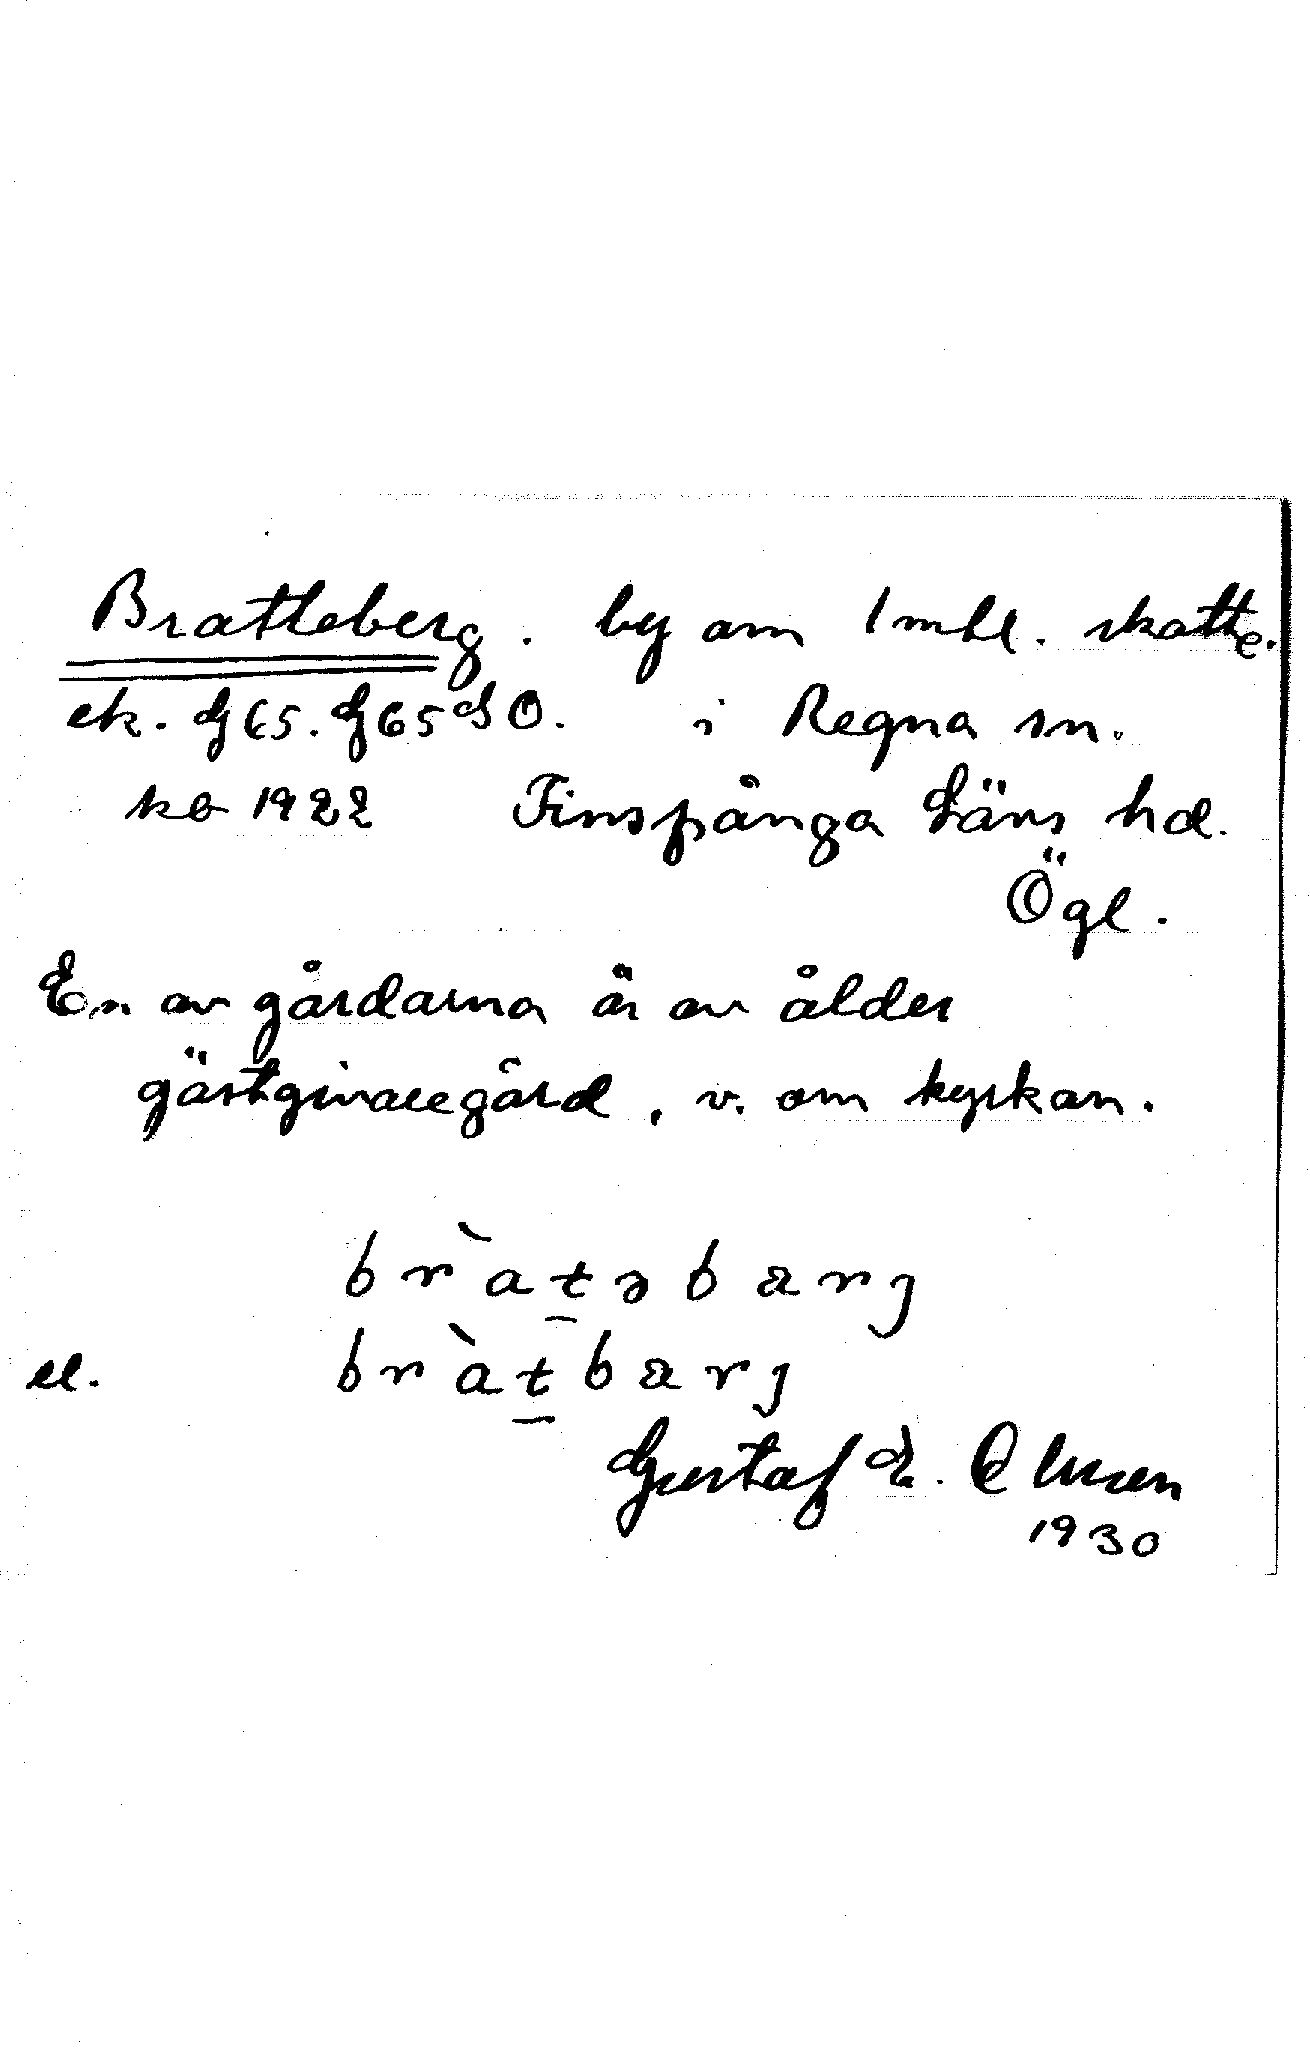 Bratteberg. by om 1 mtl. skatte.
ek. G65. G65 SO. i Regna sn.
kb 1922 Finspånga Läns hd.
Ögl.
En av gårdarna är av ålder
gästgivaregård, v. om kyrkan.
bràt̲əbærj
el. bràt̲bærj
Gustaf E. Olsson
1930